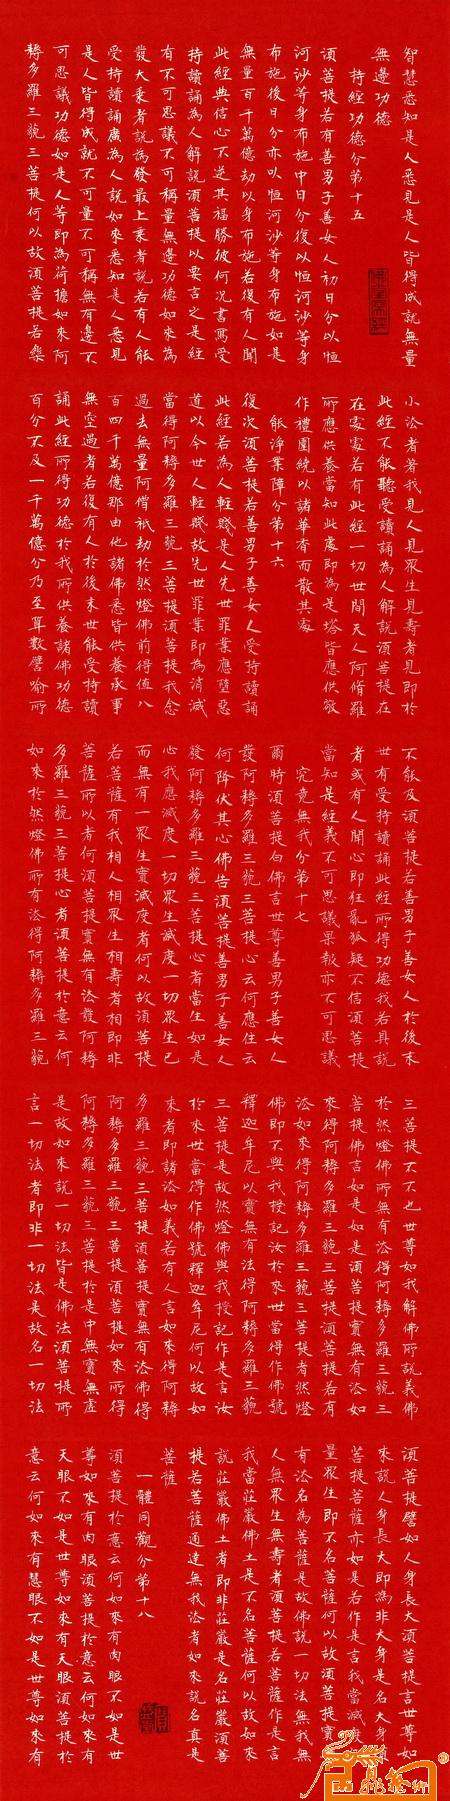 智慧悉知是人悉見是人皆得成就無量
無邊功德
持經功德分第十五
須菩提若有善男子善女人初日分以恒
河沙等身布施中日分復以恒河沙等身
布施後日分亦以恒河沙等身布施如是
無量百千萬億劫以身布施若復有人聞
此經典信心不逆其福勝彼何況書寫受
持讀誦為人解說須菩提以要言之是經
有不可思議不可稱量無邊功德如來為
發大乘者說為發最上乘者說若有人能
受持讀誦廣為人說如來悉知是人悉見
是人皆得成就不可量不可稱無有邊不
可思議功德如是人等即為荷擔如來阿
耨多羅三藐三菩提何以故須菩提若樂
小法者著我見人見眾生見壽者見即於
此經不能聽受讀誦為人解說須菩提在
在處處若有此經一切世間天人阿脩羅
所應供養當知此處即為是塔皆應供敬
作禮圍繞以諸華香而散其處
能淨業障分第十六
復次須菩提若善男子善女人受持讀誦
此經若為人輕賤是人先世罪業應墮惡
道以今世人輕賤故先世罪業即為消滅
當得阿耨多羅三藐三菩提須菩提我念
過去無量阿僧祇劫於然燈佛前得值八
百四千萬億那由他諸佛悉皆供養承事
無空過者若復有人於後末世能受持讀
誦此經所得功德於我所供養諸佛功德
百分不及一千萬億分乃至算數譬喻所
不能及須菩提若善男子善女人於後末
世有受持讀誦此經所得功德我若具說
者或有人聞心即狂亂狐疑不信須菩提
當知是經義不可思議果報亦不可思議
究竟無我分第十七
爾時須菩提白佛言世尊善男子善女人
發阿耨多羅三藐三菩提心云何應住云
何降伏其心佛告須菩提善男子善女人
發阿耨多羅三藐三菩提心者當生如是
心我應滅度一切眾生滅度一切眾生已
而無有一眾生實滅度者何以故須菩提
若菩薩有我相人相眾生相壽者相即非
菩薩所以者何須菩提實無有法發阿耨
多羅三藐三菩提心者須菩提於意云何
如來於然燈佛所有法得阿耨多羅三藐
三菩提不不也世尊如我解佛所說義佛
於然燈佛所無有法得阿耨多羅三藐三
菩提佛言如是如是須菩提實無有法如
來得阿耨多羅三藐三菩提須菩提若有
法如來得阿耨多羅三藐三菩提者然燈
佛即不與我授記汝於來世當得作佛號
釋迦牟尼以實無有法得阿耨多羅三藐
三菩提是故然燈佛與我授記作是言汝
於來世當得作佛號釋迦牟尼何以故如
來者即諸法如義若有人言如來得阿耨
多羅三藐三菩提須菩提實無有法佛得
阿耨多羅三藐三菩提須菩提如來所得
阿耨多羅三藐三菩提於是中無實無虛
是故如來說一切法皆是佛法須菩提所
言一切法者即非一切法是故名一切法
須菩提譬如人身長大須菩提言世尊如
來說人身長大即為非大身是名大身須
菩提菩薩亦如是若作是言我當滅度無
量眾生即不名菩薩何以故須菩提實無
有法名為菩薩是故佛說一切法無我無
人無眾生無壽者須菩提若菩薩作是言
我當莊嚴佛土是不名菩薩何以故如來
說莊嚴佛土者即非莊嚴是名莊嚴須菩
提若菩薩通達無我法者如來說名真是
菩薩
一體同觀分第十八
須菩提於意云何如來有肉眼不如是世
尊如來有肉眼須菩提於意云何如來有
天眼不如是世尊如來有天眼須菩提於
意云何如來有慧眼不如是世尊如來有